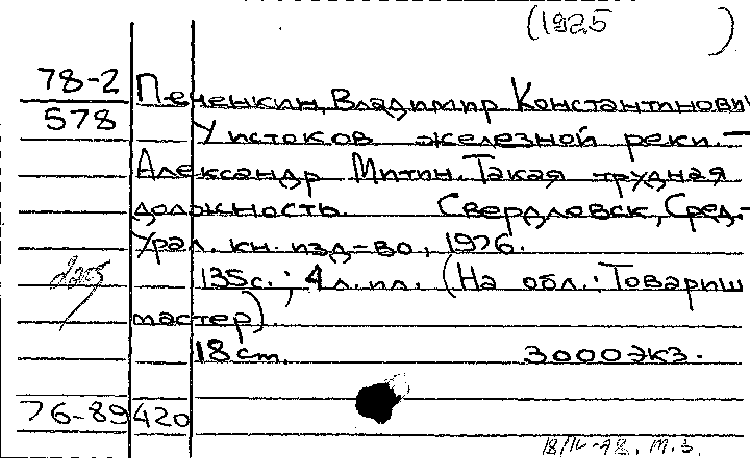 (1925 )
78-2
578
Печенкин, Владимир Константинович
У истоков железной реки. —
Александр Митин. Такая трудная
должность. Свердловск, Сред.-
Урал. кн. изд-во, 1976.
135с.; 4 л. ил. (На обл.: Товарищ
мастер).
18 см. 3000 экз.
76-89420
18/IV-78. М.З.